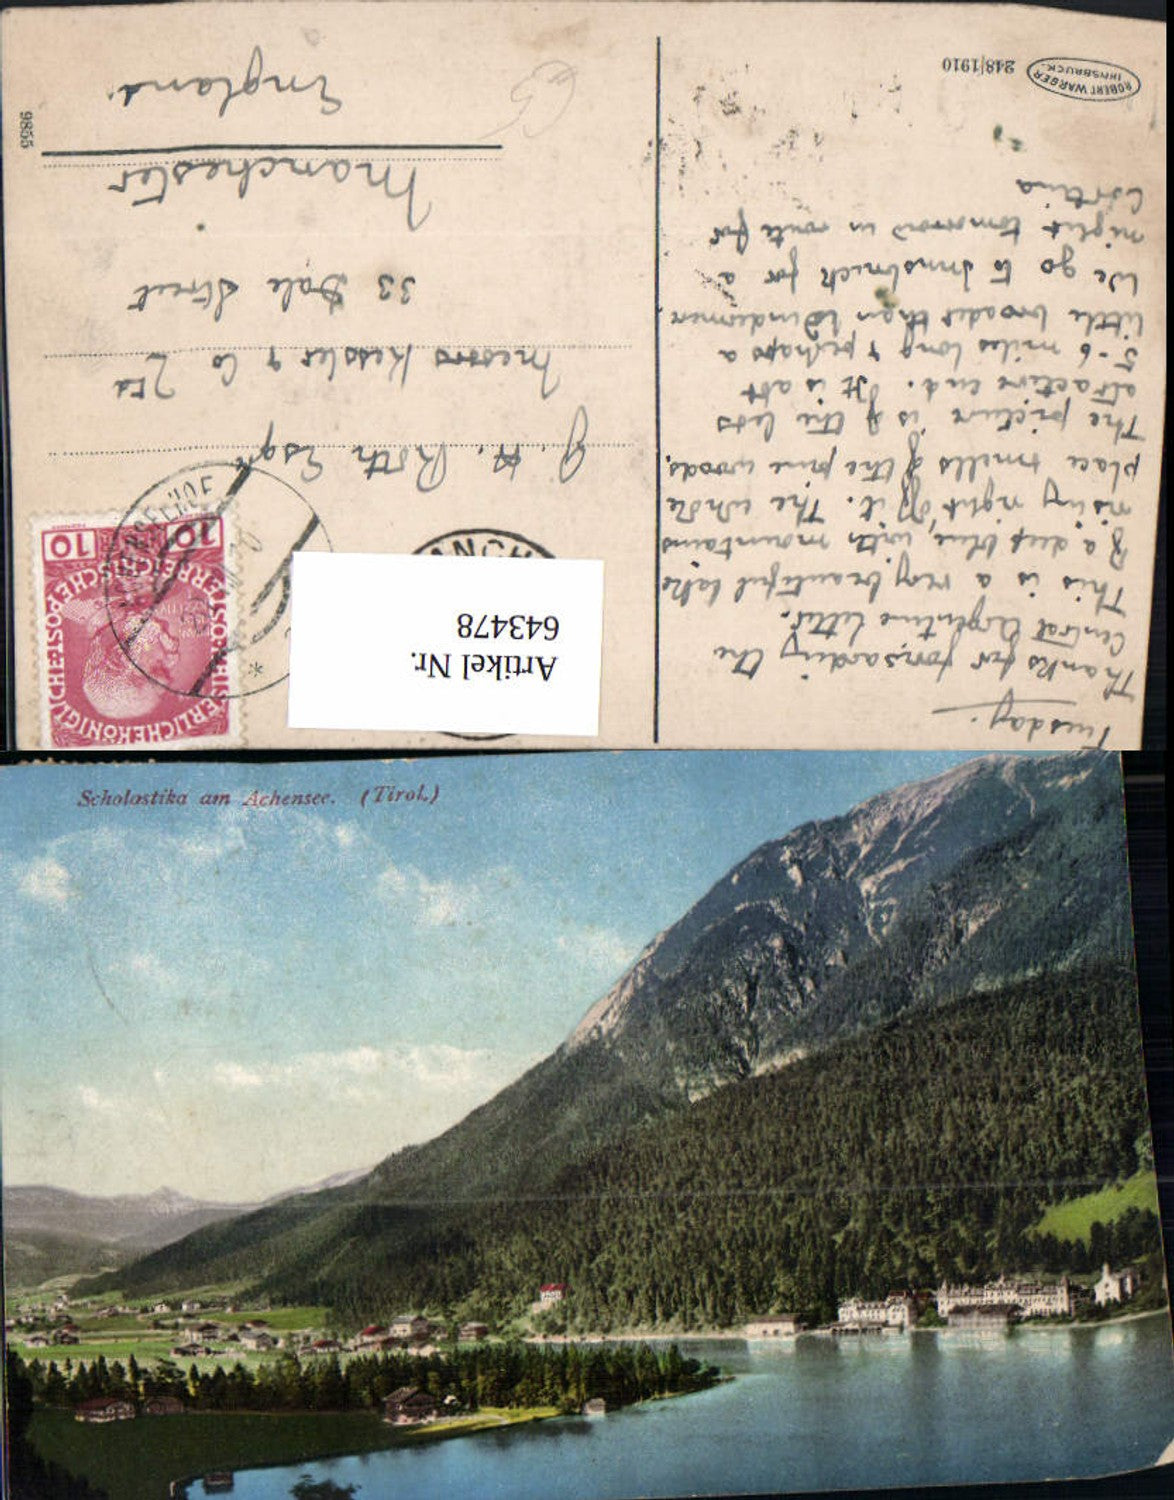 ROBERT WARGER
INNSBRUCK.
248|1910
Tuesday.
Thanks for forwarding the
Central Argentine letter.
This is a very beautiful lake
& a deep blue, with mountains
rising right off it. The whole
place smells of the pine woods.
The picture is of the less
attractive end. It is abt
5-6 miles long & perhaps a
little broader than Windermere.
We go to Innsbruck for a
night tomorrow en route for
Cortina
MANCH
10 10
KAISERLICHE KÖNIGLICHE ÖSTERREICHISCHE POST
Artikel Nr.
643478
G. H. Roth Esqre
Messrs Kessler & Co Ltd
33 Dale Street
Manchester
England.
9855
Scholastika am Achensee. (Tirol.)